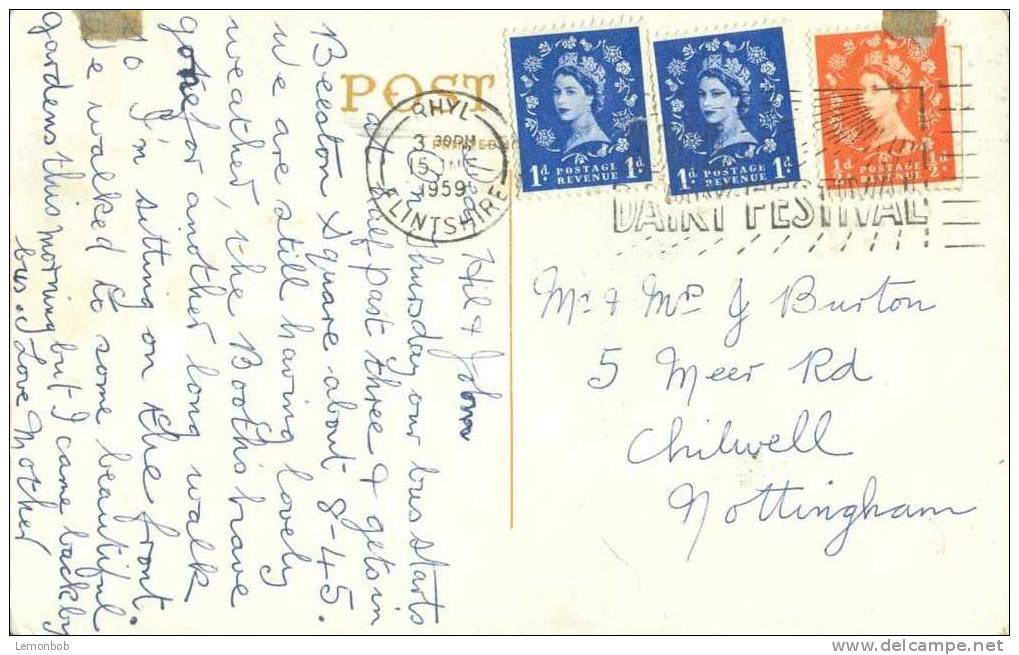 POST
RHYL
3 30PM
1959
FLINTSHIRE
DAIRY FESTIVAL
1d POSTAGE REVENUE 1d
1d POSTAGE REVENUE 1d
½d POSTAGE REVENUE ½d
Hil & John
Thursday our bus starts
at half past three & gets in
Beeston Square about 8-45.
We are still having lovely
weather, the Booths have
gone for another long walk
so I'm sitting on the front.
We walked to some beautiful
gardens this morning but I came back by
bus. Love Mother
Mr & Mrs J Burton
5 Meer Rd
Chilwell
Nottingham
Lemonbob
www.delcampe.net